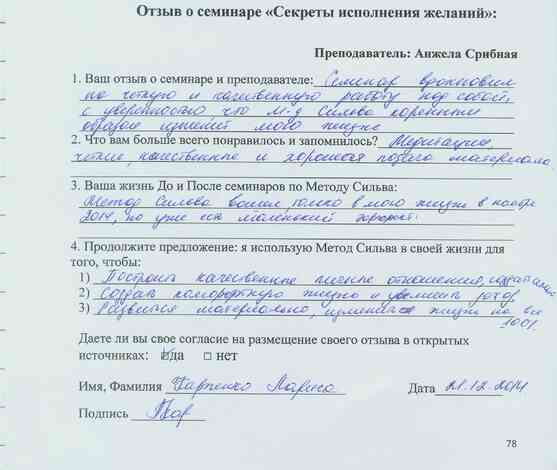 Отзыв о семинаре «Секреты исполнения желаний»:
Преподаватель: Анжела Срибная
1. Ваш отзыв о семинаре и преподавателе: Семинар вдохновил
на четкую и качественную работу над собой,
с уверенностью, что М-д Сильва коренным
образом изменит мою жизнь
2. Что вам больше всего понравилось и запомнилось? Медитации,
четкие, качественные и хорошая подача материала.
3. Ваша жизнь До и После семинаров по Методу Сильва:
Метод Сильва вошел только в мою жизнь в ноябре
2014, но уже есть маленький
4. Продолжите предложение: я использую Метод Сильва в своей жизни для
того, чтобы:
1) Построить качественные личные отношения, создать
2) Создать комфортную жизнь и увеличить доход
3) Развиться материально, жизнь на все
100%.
Даете ли вы свое согласие на размещение своего отзыва в открытых
источниках: да □ нет
Имя, Фамилия Карпенко Лариса Дата 21.12.2014
Подпись
78